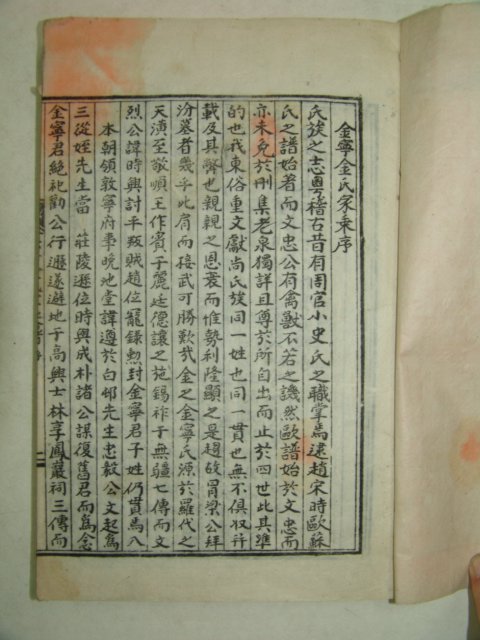 金寧金氏家乘序
氏族之志粤稽右昔有周官小史氏之職掌焉逮趙宋時歐蘇
氏之譜始著而文忠公有禽獸不若之譏然歐譜始於文忠而
亦未免於刪集老泉獨詳且尊於所自出而止於四世此其準
的也我東俗重文獻尚氏族同一姓也同一貫也無不俱收幷
載及其弊也親親之恩衰而惟勢利隆顯之是趨故冐梁公拜
汾墓者幾乎比肩而接武可勝歎哉金之金寧氏源於羅代之
天潢至敬順王作賓于麗廷德讓之施錫祚于無疆七傳而文
烈公諱時興討平叛賊趙位寵錄勲封金寧君子姓仍貫焉八
本朝領敦寧府事晩地堂諱遵於白邨先生忠毅公文起爲
三從姪先生當 莊陵遜位時與成朴諸公謀復舊君而爲念
金寧君絶祀勸公行遯遂避地于高興士林享鳳巖祠三傳而